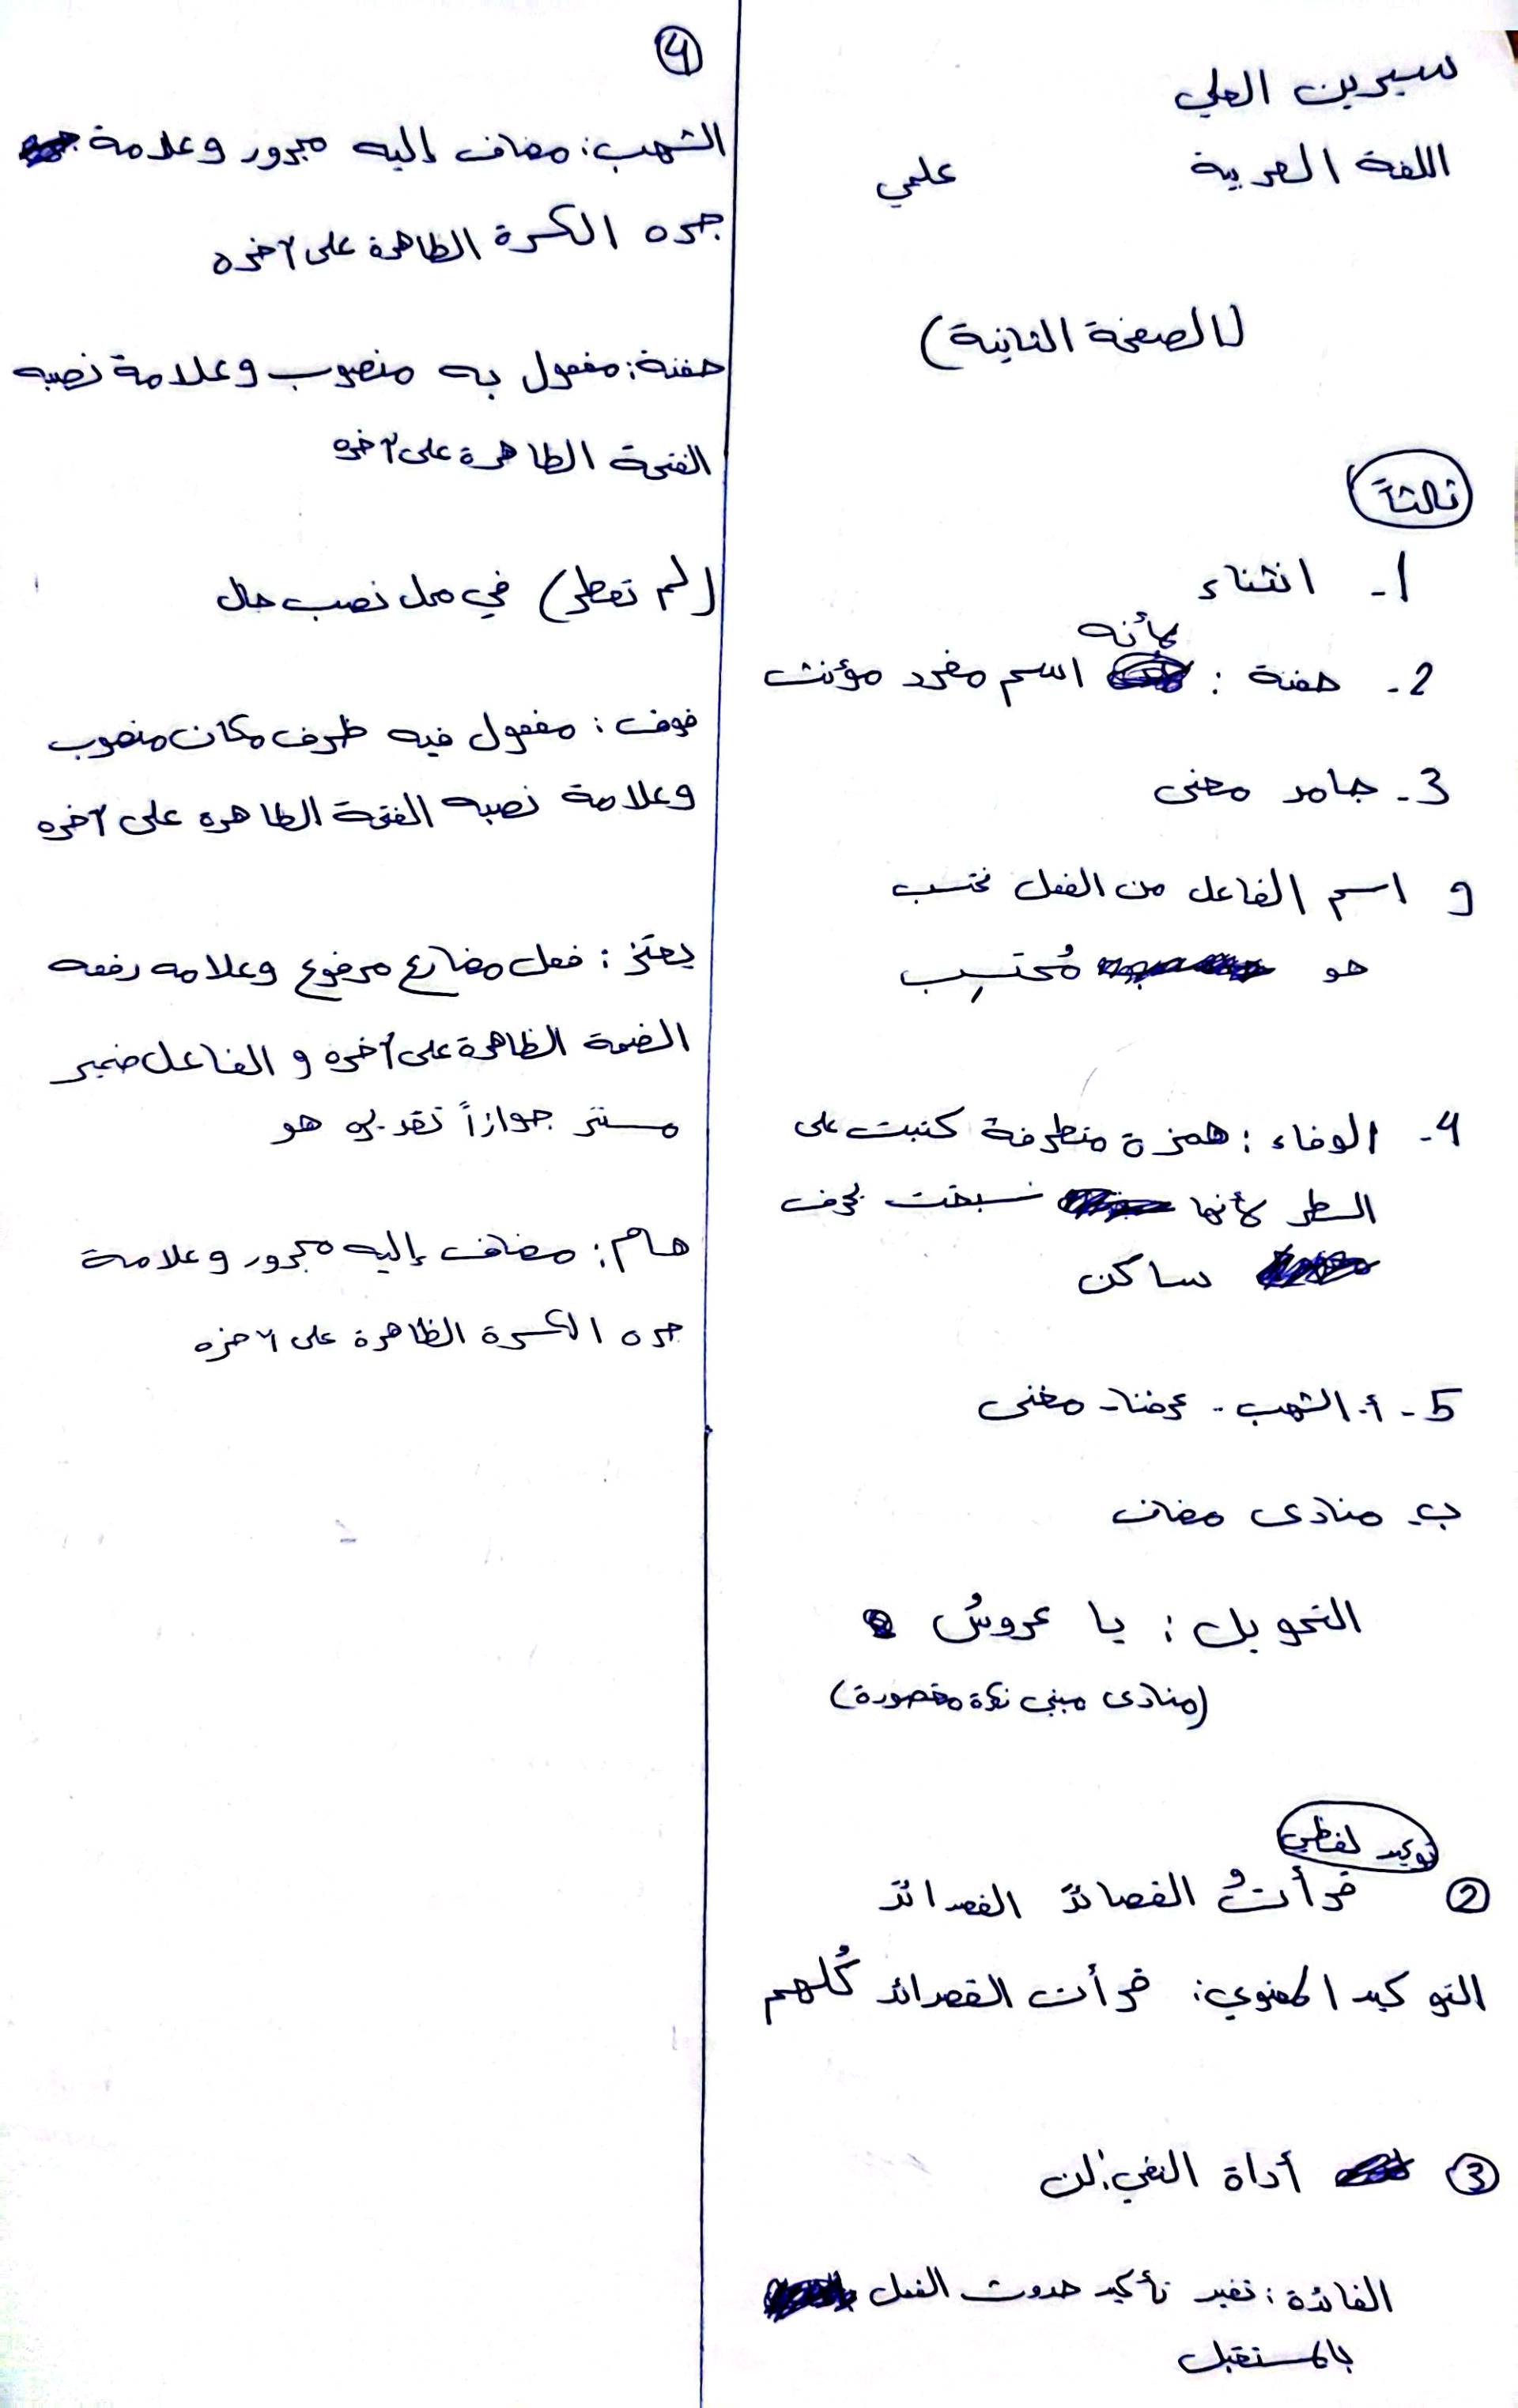 سيرين العلي
اللغة العربية علمي
(الصفحة الثانية)
ثالثاً
1- انثناء
2- حفنة : لأنه اسم مفرد مؤنث
3- جامد معنى
و اسم الفاعل من الفعل نحتسب
هو مُحتسِب
4- الوفاء : همزة متطرفة كتبت على
السطر لأنها سبقت بحرف
ساكن
5- أ. الشهب - عرضنا - مغنى
ب. منادى مضاف
التحويل : يا عروسُ
(منادى مبني نكرة مقصورة)
توكيد لفظي
② قرأتُ القصائدَ القصائدَ
التوكيد المعنوي: قرأت القصائد كُلهم
③ أداة النفي: لن
الفائدة : تفيد تأكيد حدوث الفعل
بالمستقبل
④
الشهب: مضاف إليه مجرور وعلامة
جره الكسرة الظاهرة على آخره
حفنة: مفعول به منصوب وعلامة نصبه
الفتحة الظاهرة على آخره
(لم تعطر) في محل نصب حال
فوق : مفعول فيه ظرف مكان منصوب
وعلامة نصبه الفتحة الظاهره على آخره
يعتز : فعل مضارع مرفوع وعلامه رفعه
الضمة الظاهرة على آخره و الفاعل ضمير
مستتر جوازاً تقديره هو
هام: مضاف إليه مجرور وعلامة
جره الكسرة الظاهرة على آخره